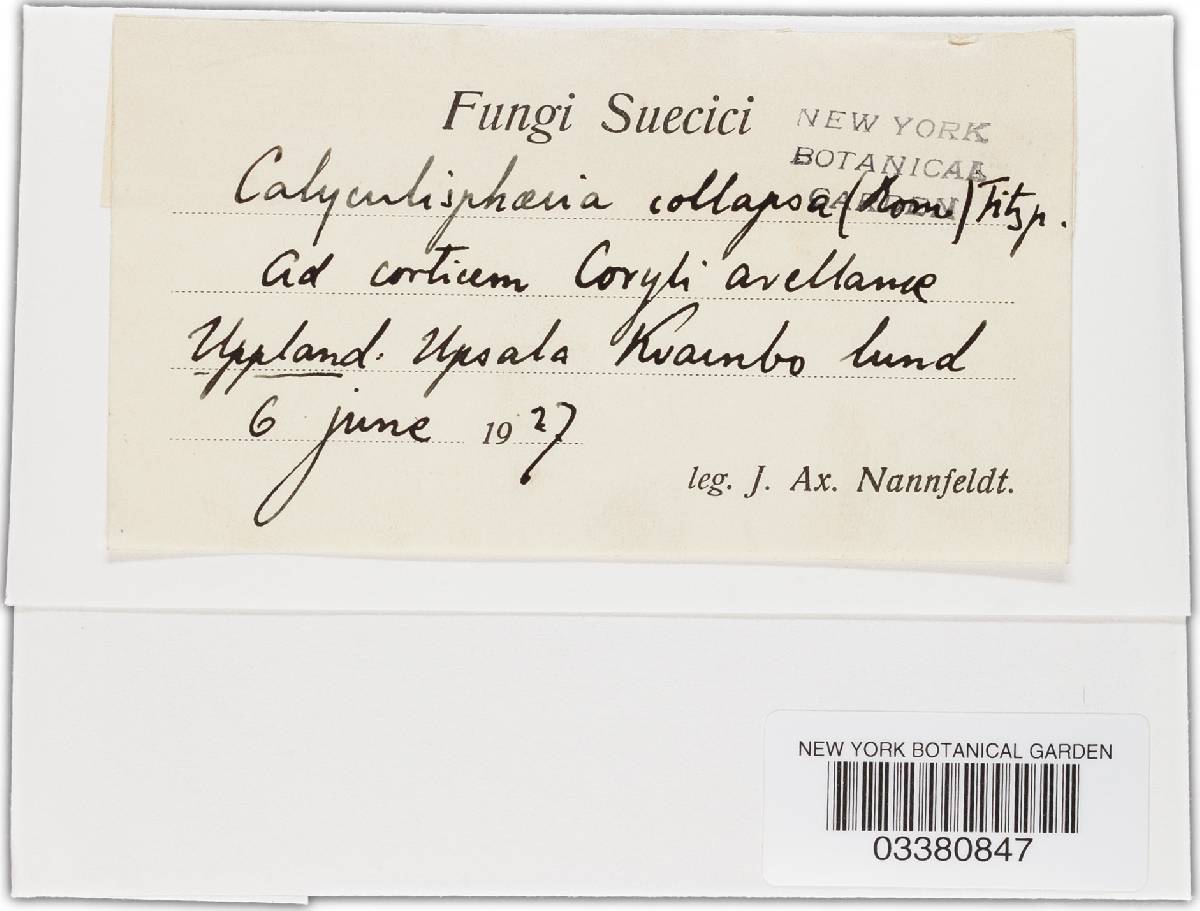 Fungi Suecici
NEW YORK
BOTANICAL
GARDEN
Calyculisphæria collapsa (Rom) Fitzp.
ad corticem Coryli avellanæ
Uppland. Upsala Kvarnbo lund
6 june 1927
leg. J. Ax. Nannfeldt.
NEW YORK BOTANICAL GARDEN
03380847